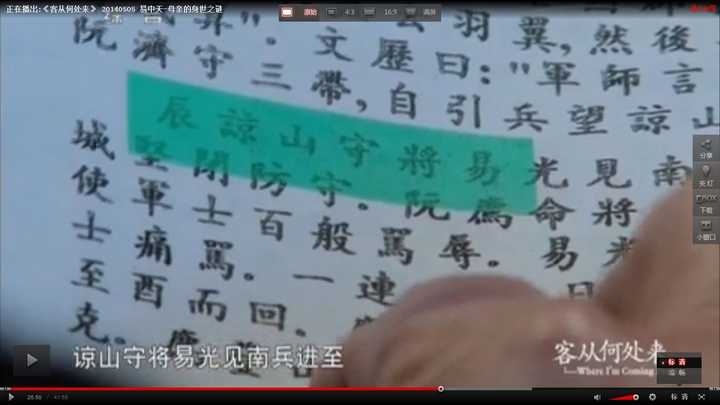 正在播出:《客从何处来》 20140505 易中天-母亲的身世之谜
原始 4:3 16:9 满屏
羽翼，然後
昇”。文歷曰：“軍師言
阮濟守三帶，自引兵望諒山
辰諒山守將易光見南
城堅閉防守。阮廌命將
使軍士百般罵辱。易光
士痛罵。一連
至酉而回。
克。
分享
关灯
BOX
下载
小窗口
谅山守将易光见南兵进至
客从何处来
Where I'm Coming
标清
标清